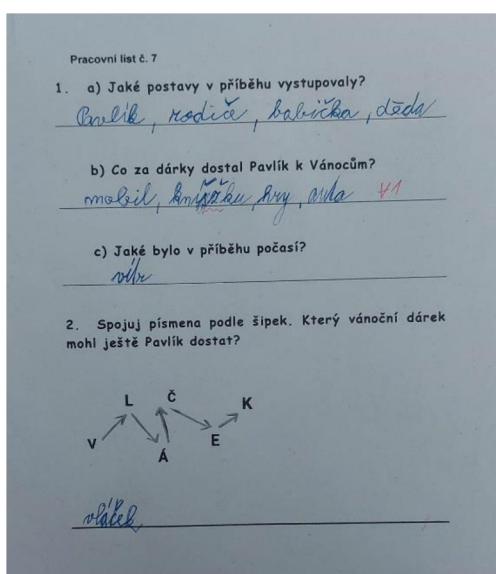 Pracovní list č. 7
1. a) Jaké postavy v příběhu vystupovaly?
Pavlík, rodiče, babička, děda
b) Co za dárky dostal Pavlík k Vánocům?
mobil, hry,
c) Jaké bylo v příběhu počasí?
2. Spojuj písmena podle šipek. Který vánoční dárek
mohl ještě Pavlík dostat?
L Č K
V Á E
vláček